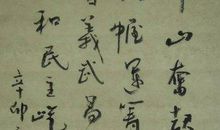 山奮起
幄運籌
義武昌
和民主
辛卯